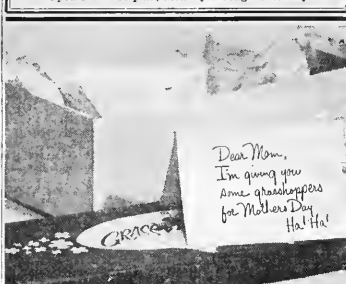 Dear Mom,
I'm giving you
some grasshoppers
for Mothers Day
Ha! Ha!